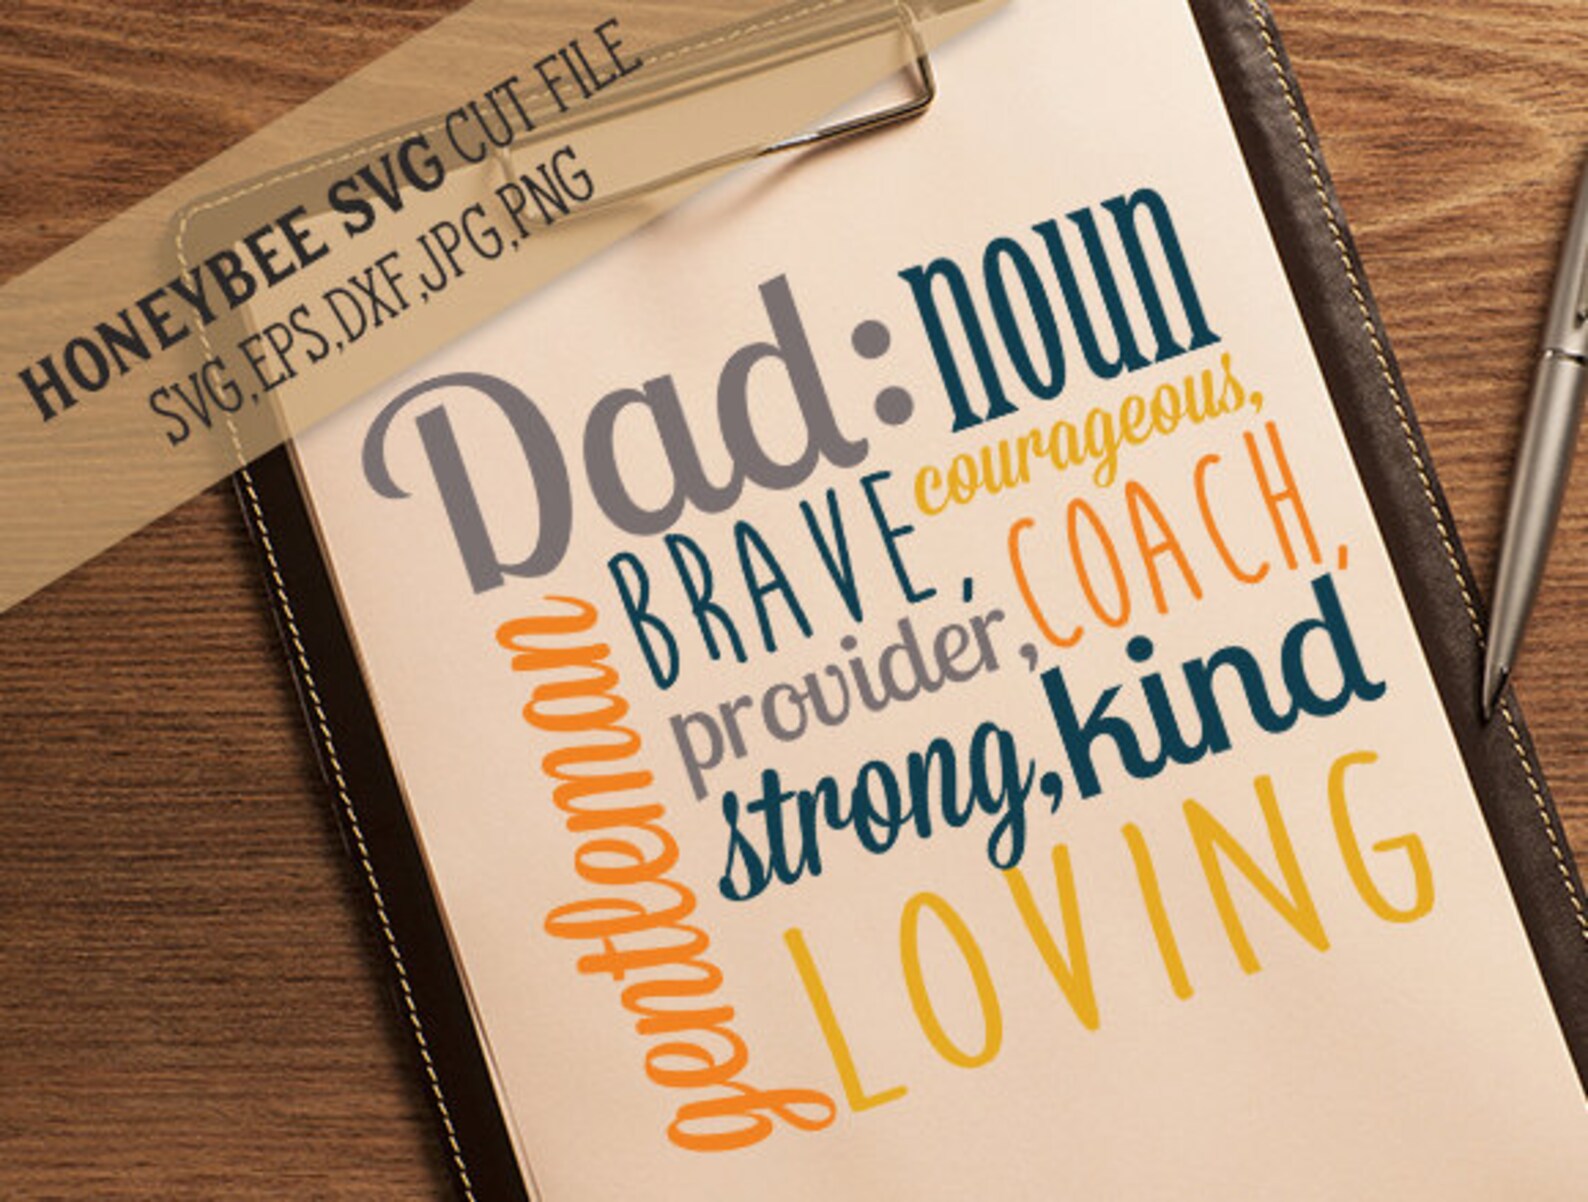 HONEYBEE SVG CUT FILE
SVG,EPS,DXF,JPG,PNG
Dad: noun
courageous,
BRAVE,
COACH,
provider,
strong, kind
gentleman
LOVING